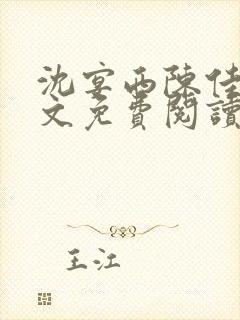 沈宴西陳佳
文免費閱讀
王江